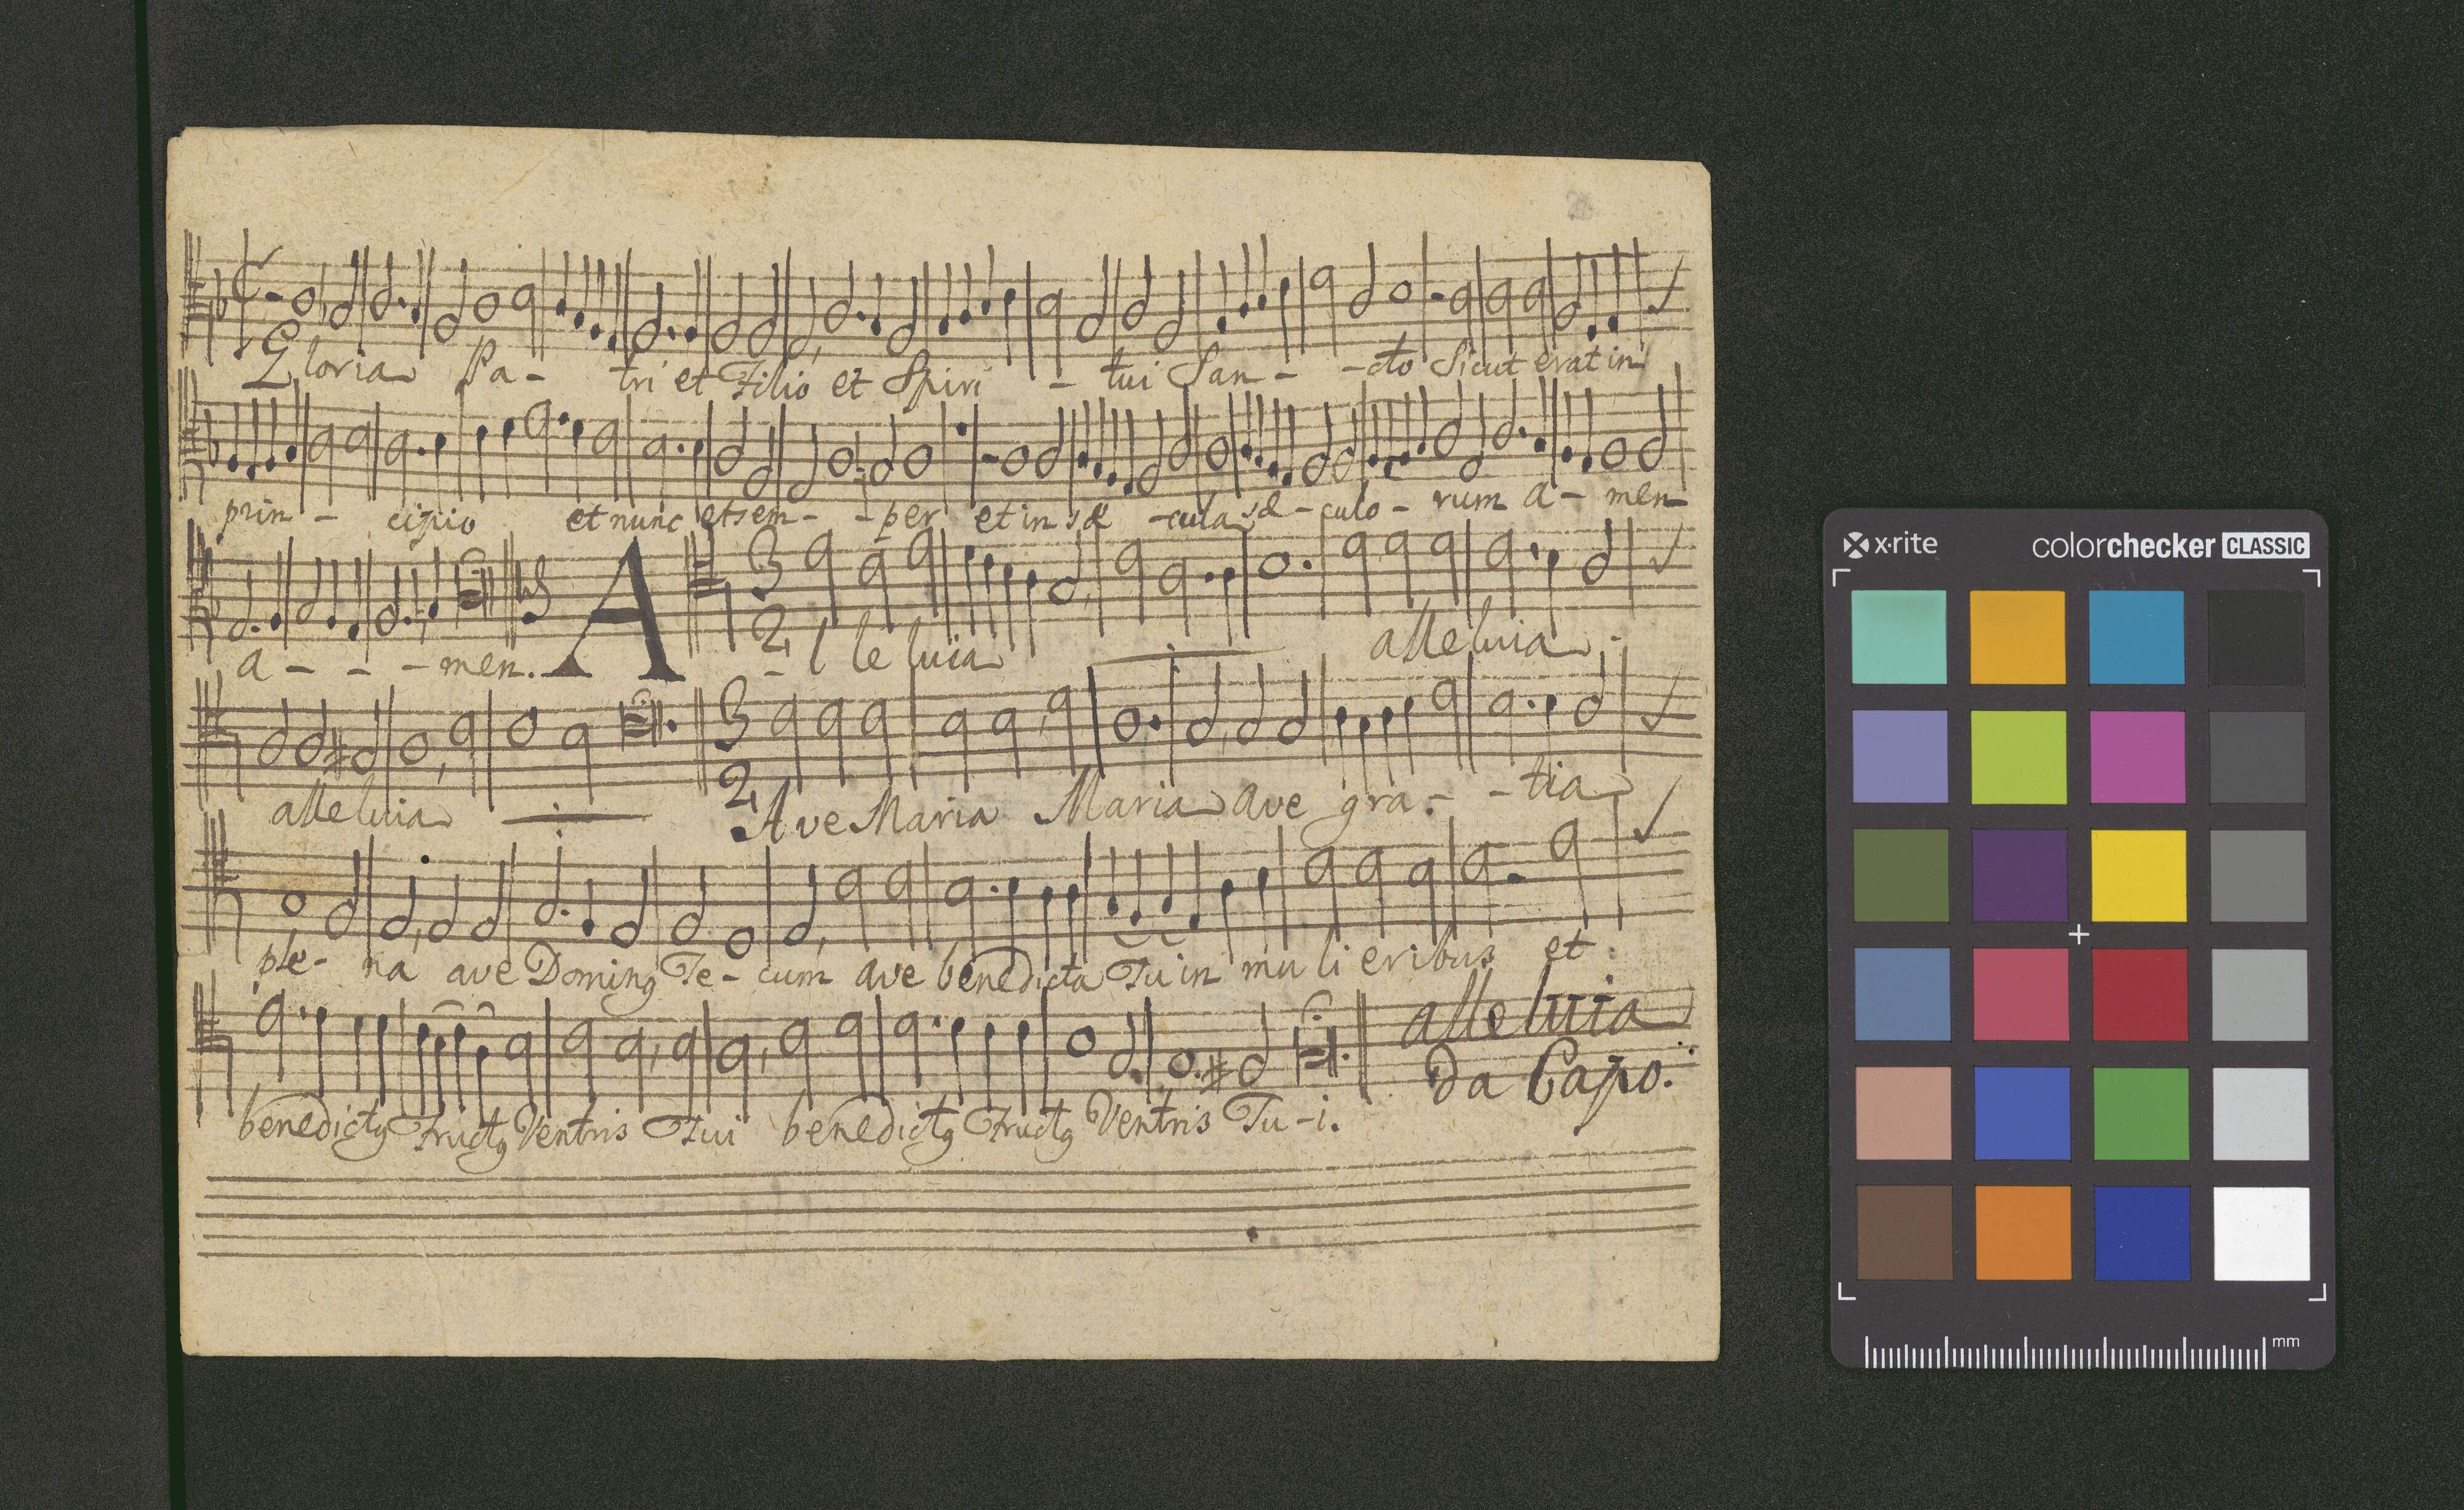 Gloria Pa- tri et Filio et Spiri - tui San- - -cto Sicut erat in
prin - cipio et nunc et sem- -per et in sæ -cula sæ-culo- rum a- men
a - - - men. A - l le luia alleluia
alleluia 3 2 Ave Maria Maria ave gra- -tia
ple- na ave Dominꝰ Te- cum ave benedicta Tu in mu li eribus et
benedictꝰ Fructꝰ Ventris Tui benedictꝰ Fructꝰ Ventris Tu-i.
alleluia
Da Capo.
x-rite colorchecker CLASSIC
mm